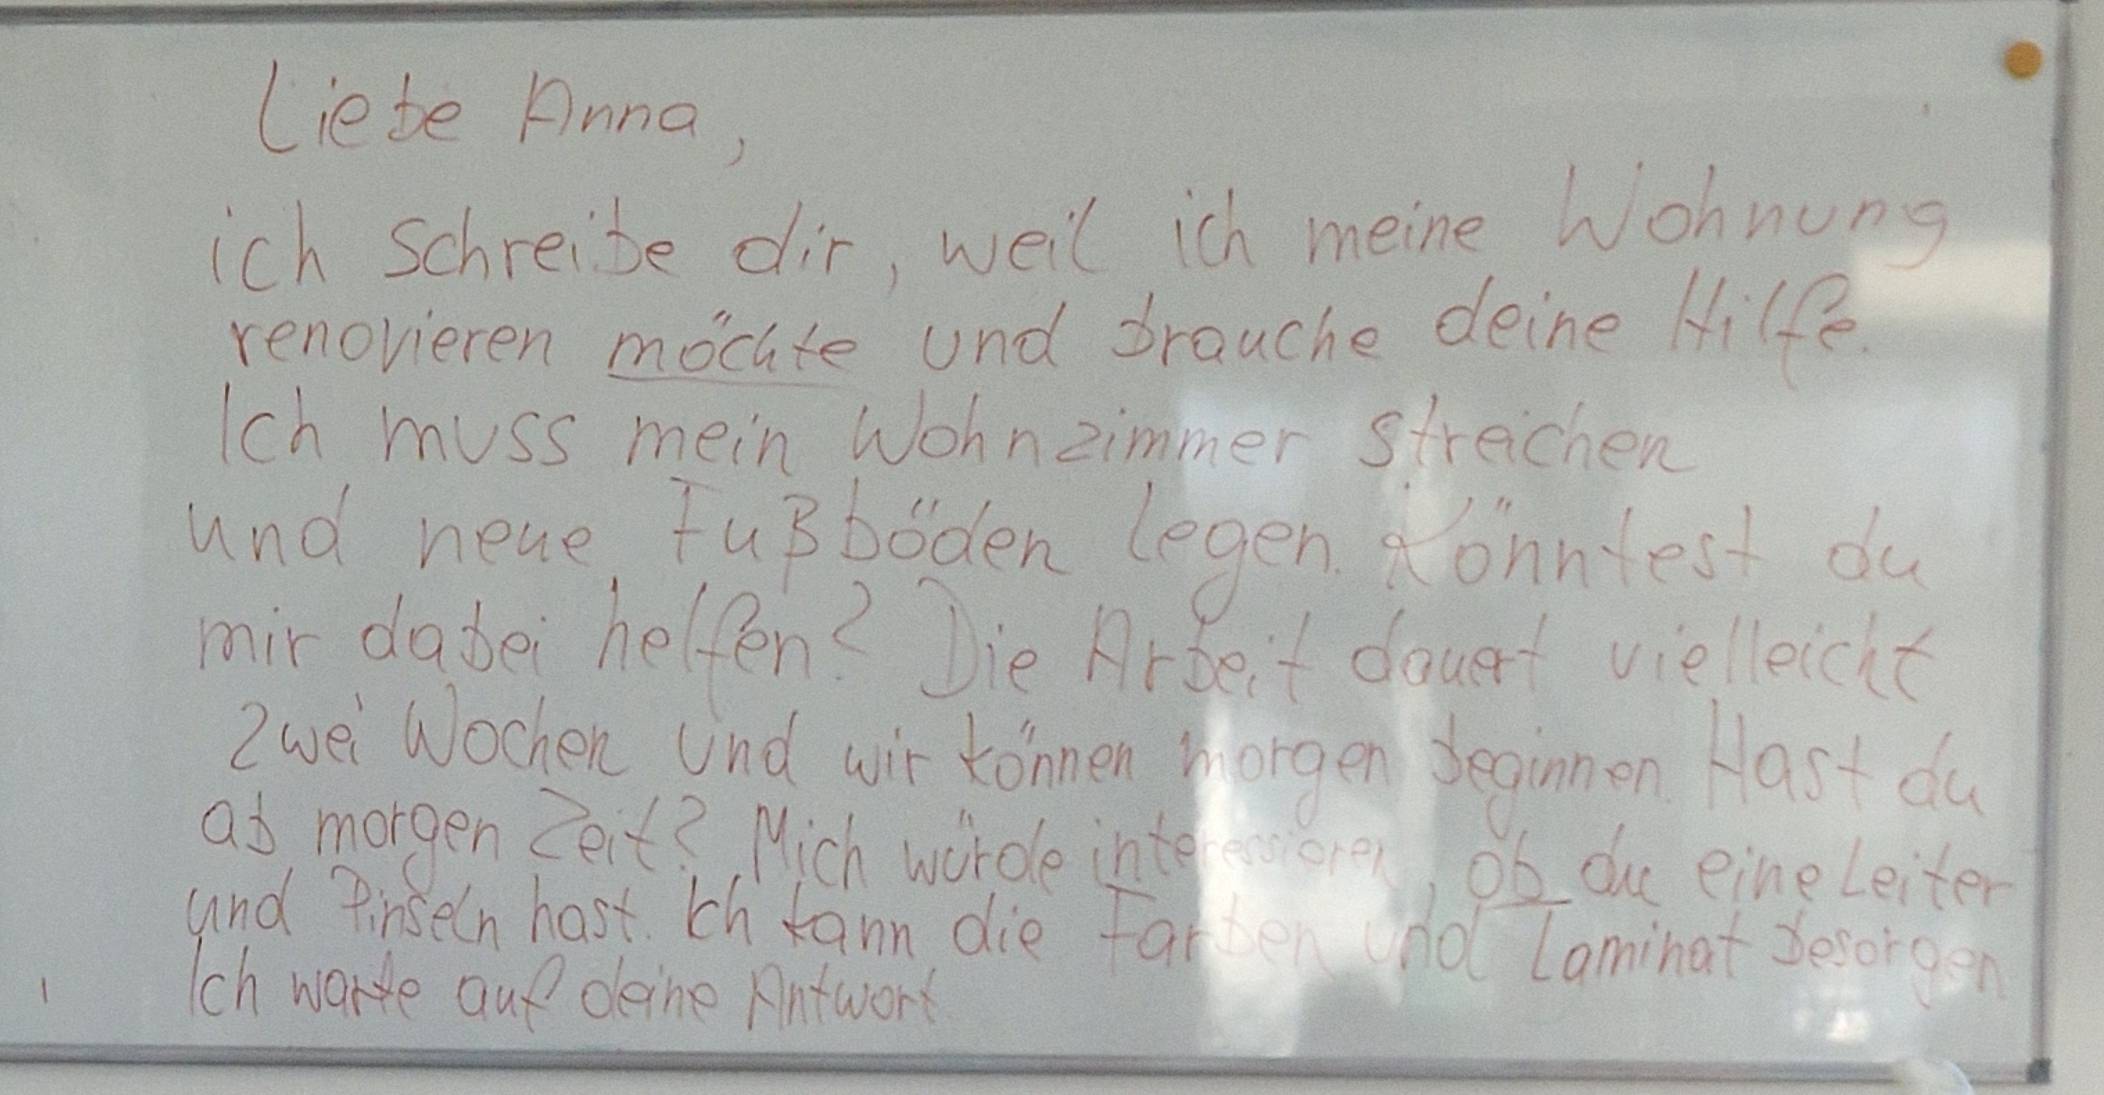 Liebe Anna,
ich schreibe dir, weil ich meine Wohnung
renovieren möchte und brauche deine Hilfe.
Ich muss mein Wohnzimmer streichen
und neue Fußböden legen. Könntest du
mir dabei helfen? Die Arbeit dauert vielleicht
zwei Wochen und wir können morgen beginnen. Hast du
ab morgen Zeit? Mich würde interessieren, ob du eine Leiter
und Pinseln hast. Ich kann die Farben und Laminat besorgen
Ich warte auf deine Antwort